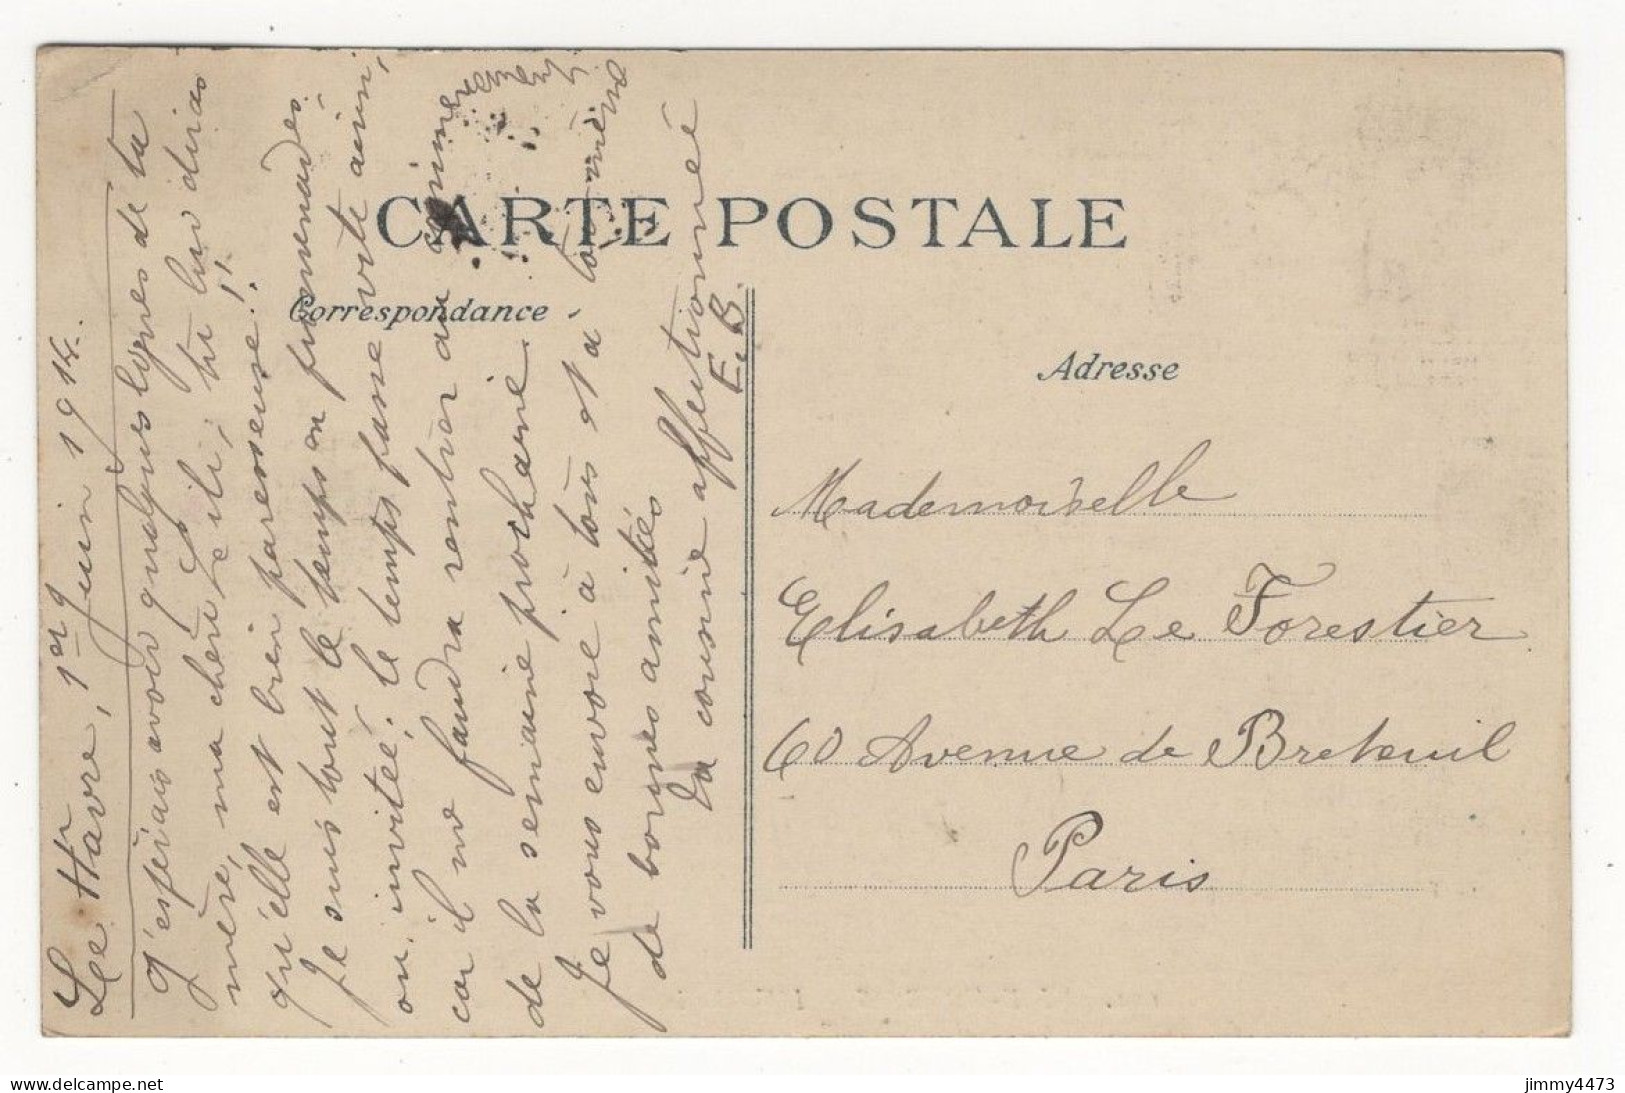 CARTE POSTALE
Correspondance
Adresse
Le Hâvre, 1er Juin 1914.
J'espérais avoir quelques lignes de ta
mère, ma chère Lili; tu lui diras
qu'elle est bien paresseuse!!
Je suis tout le temps en promenades
ou invitée; le temps passe vite ainsi,
car il me faudra rentrer au
de la semaine prochaine.
Je vous envoie à tous et à toi-même
de bonnes amitiés
Ta cousine affectionnée
E. B.
Mademoiselle
Elisabeth Le Forestier
60 Avenue de Breteuil
Paris
delcampe.net
jimmy4473